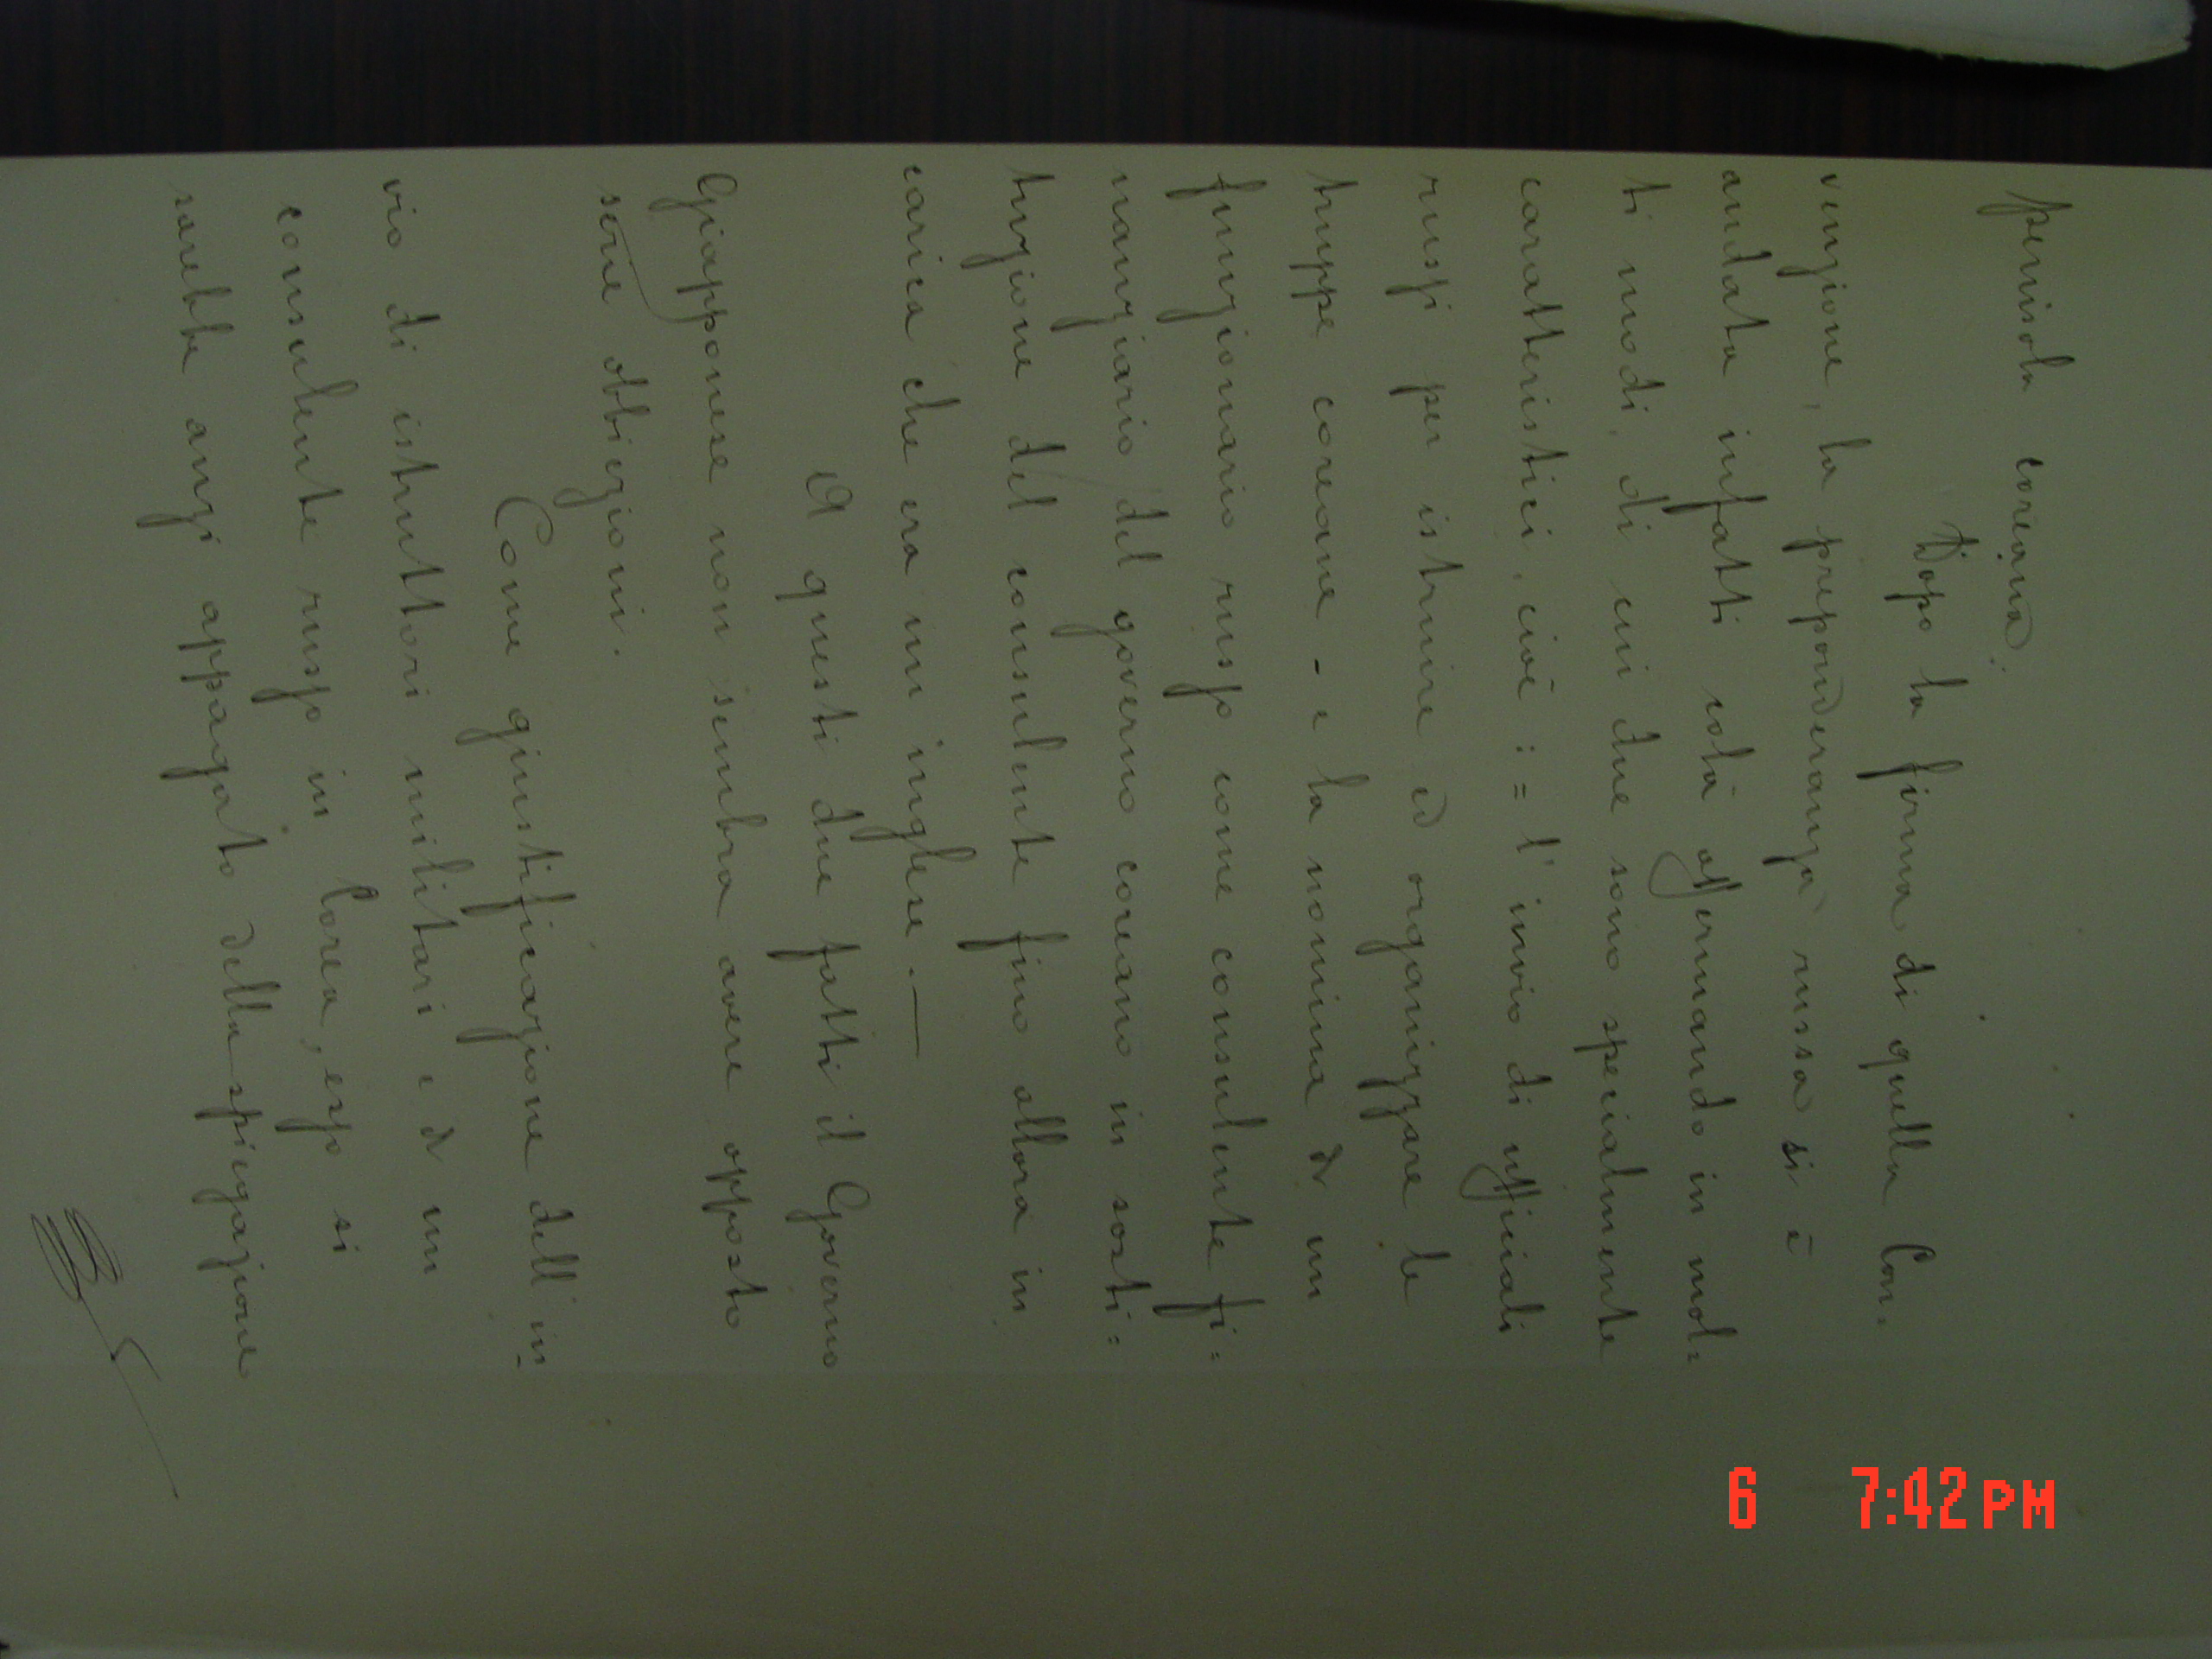 penisola coreana.
Dopo la firma di quella Con-
venzione, la preponderanza russa si è
andata infatti colà affermando in mol=
ti modi, di cui due sono specialmente
caratteristici, cioè := l'invio di ufficiali
russi per istruire ed organizzare le
truppe coreane - e la nomina di un
funzionario russo come consulente fi=
nanziario del governo coreano in sosti=
tuzione del consulente fino allora in
carica che era un inglese. —
A questi due fatti il Governo
Giapponese non sembra avere opposto
serie obbiezioni.
Come giustificazione dell'in
vio di istruttori militari e di un
consulente russo in Corea, esso si
sarebbe anzi appagato della spiegazione
6 7:42PM